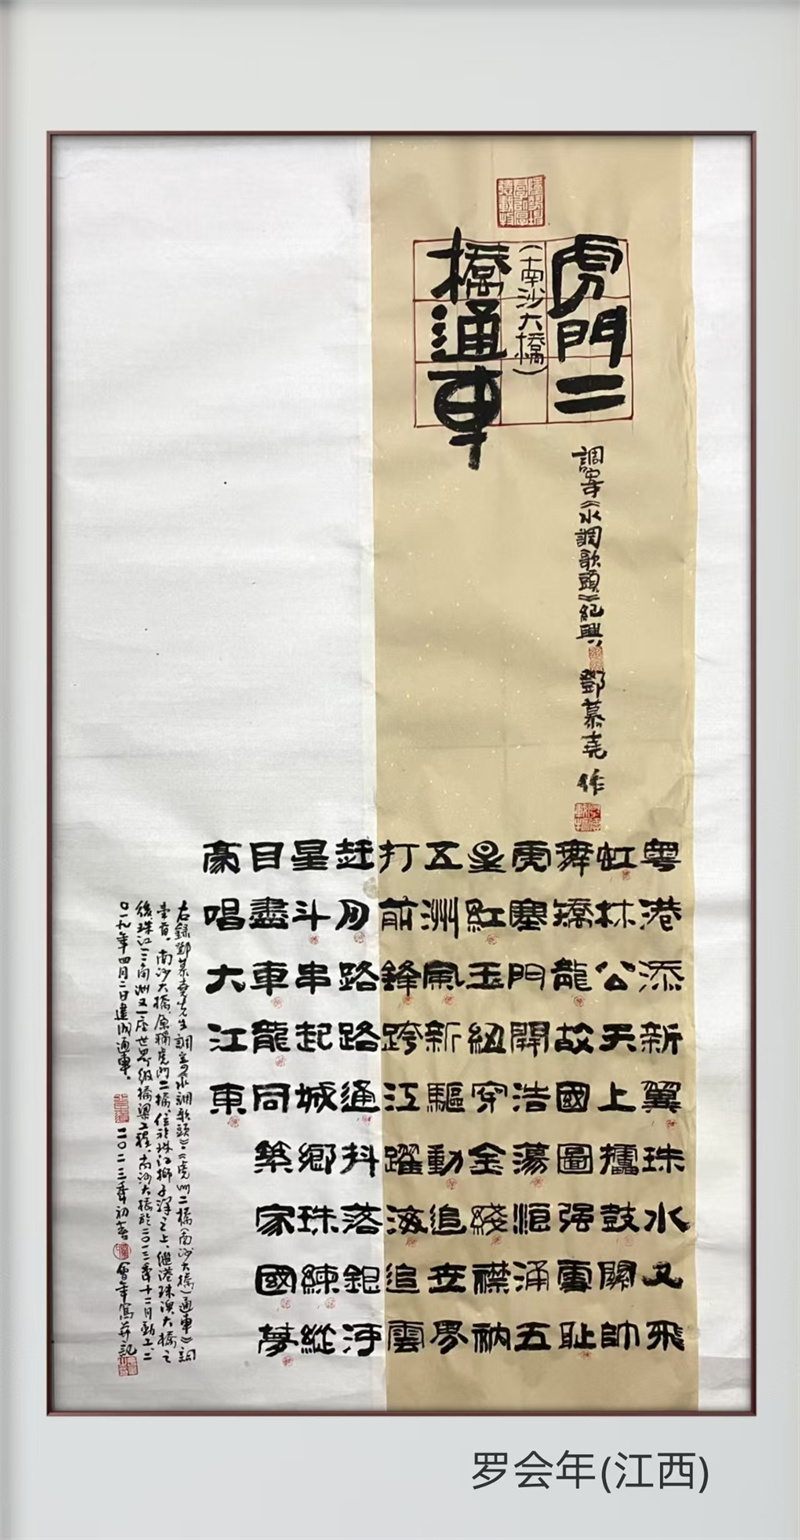 虎門二
(南沙大橋)
橋通車
調寄《水調歌頭》紀興
鄧慕堯 作
粤港添新翼珠水又飛
虹林公天上擂鼓關帥
舞矯龍故國圖强雪耻
虎塞門開浩蕩洶涌五
星紅玉紐穿金綫襟衲
五洲風新驅動追世界
打前鋒跨江躍海追雲
赶月路路通抖落銀河
星斗串起城鄉珠練縱
目盡車龍同築家國夢
豪唱大江東
右録鄧慕堯先生調寄水調歌頭·《虎門二橋(南沙大橋)通車》詞
壹首，南沙大橋，原稱虎門二橋，位於珠江獅子洋之上，繼港珠澳大橋之
後珠江三角洲又一座世界級橋梁工程，南沙大橋於二〇一三年十二月動工，二
〇一九年四月二日建成通車。 二〇二三年初春 會年寫并記
罗会年(江西)